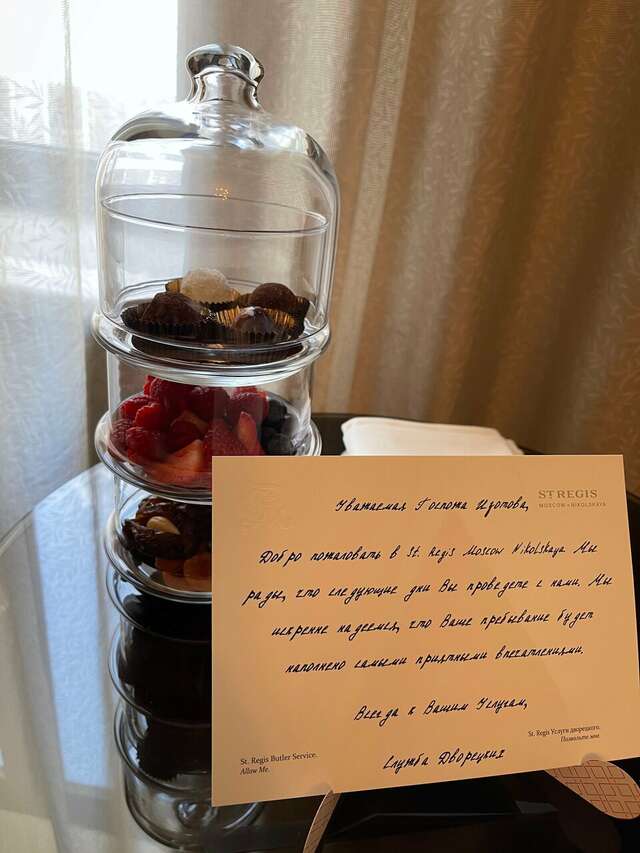 ST REGIS
MOSCOW • NIKOLSKAYA
Уважаемая Госпожа Изотова,
Добро пожаловать в St. Regis Moscow Nikolskaya Мы
рады, что следующие дни Вы проведете с нами. Мы
искренне надеемся, что Ваше пребывание будет
наполнено самыми приятными впечатлениями.
Всегда к Вашим Услугам,
Служба Дворецких
St. Regis Butler Service.
Allow Me.
St. Regis Услуги дворецкого.
Позвольте мне.